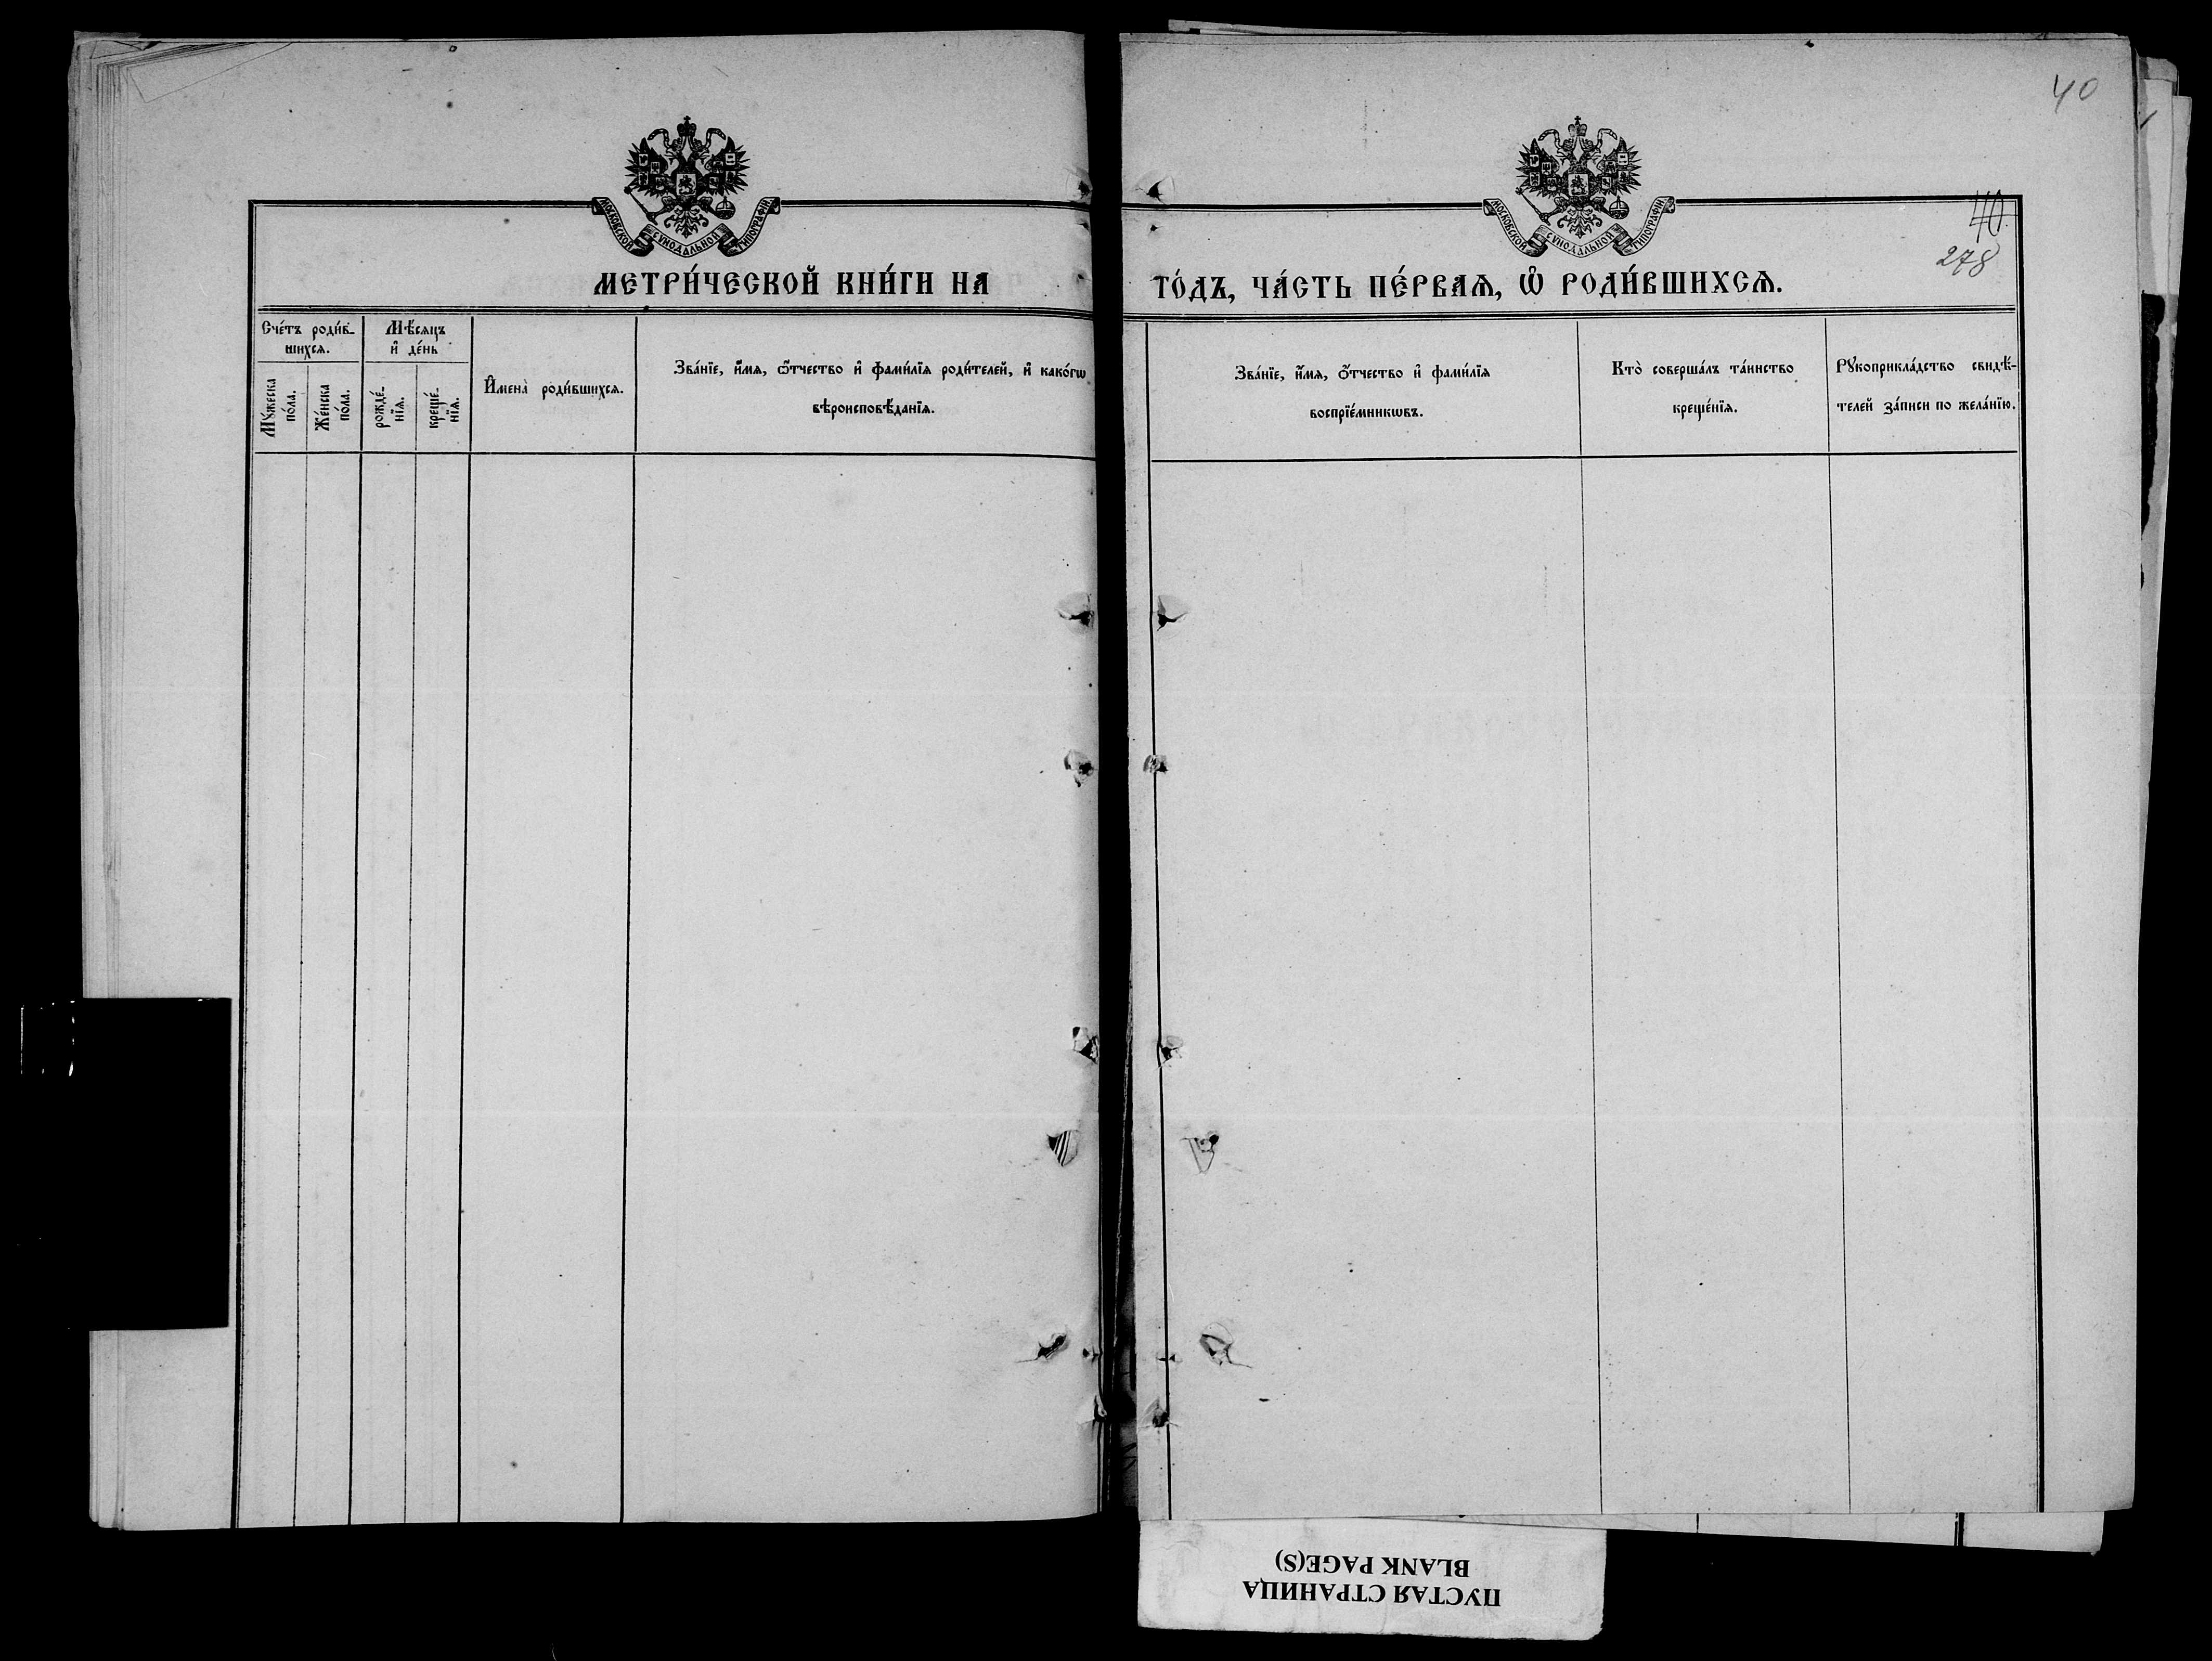 40
МОСКОВСКОЙ СѴНОДАЛЬНОЙ ТИПОГРАФІИ
МЕТРИ́ЧЕСКОЙ КНИ́ГИ НА
Сче́тъ роди́в-
шихсѧ.
Мѣ́сяцъ
и҆ де́нь
Мꙋ́жеска
по́ла.
Же́нска
по́ла.
рожде́-
нїѧ.
креще́-
нїѧ.
И҆мена̀ роди́вшихсѧ.
Зва́нїе, и҆́мѧ, ѻ҆́тчество и҆ фами́лїѧ роди́телей, и҆ како́гѡ
вѣроисповѣ́данїѧ.
МОСКОВСКОЙ СѴНОДАЛЬНОЙ ТИПОГРАФІИ
40
278
ГО́ДЪ, ЧА́СТЬ ПЕ́РВАѦ, Ѡ҆ РОДИ́ВШИХСѦ.
Зва́нїе, и҆́мѧ, ѻ҆́тчество и҆ фами́лїѧ
воспрїе́мникѡвъ.
Кто̀ соверша́лъ та́инство
креще́нїѧ.
Рꙋкоприкла́дство свидѣ́-
телей за́писи по жела́нїю.
ПУСТАЯ СТРАНИЦА
BLANK PAGE(S)